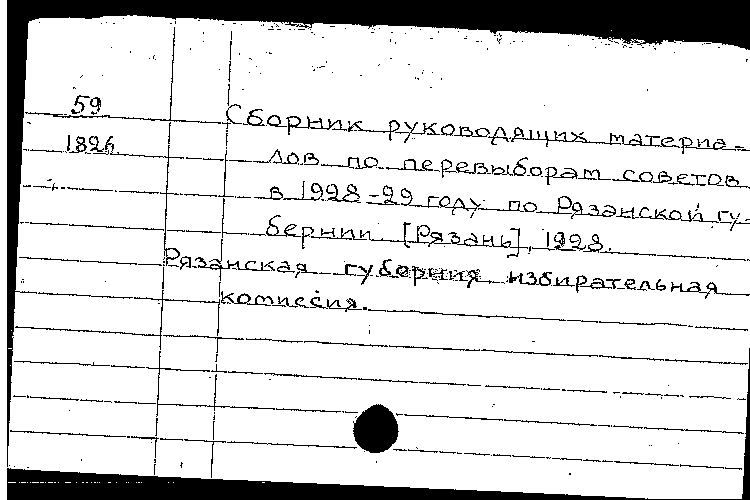 59
1826
Сборник руководящих материа-
лов по перевыборам советов
в 1928-29 году по Рязанской гу-
бернии [Рязань], 1928.
Рязанская губерния избирательная
комиссия.